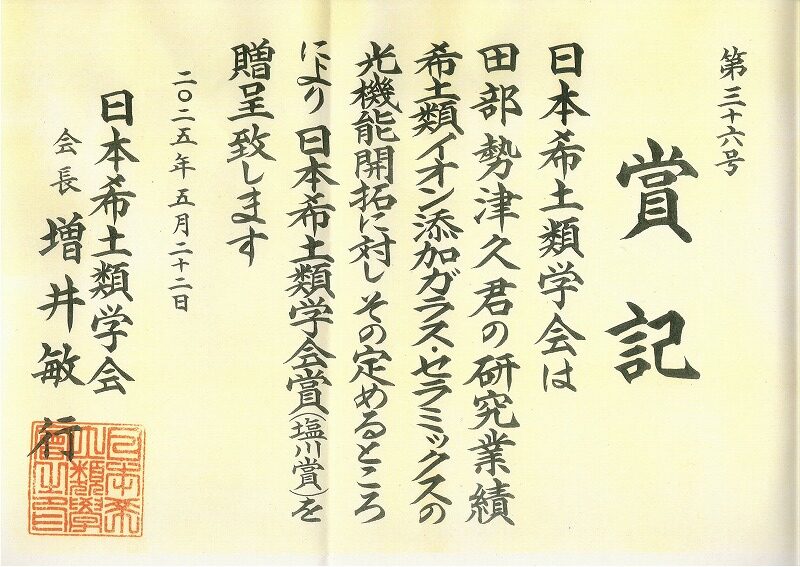 第三十六号
賞記
日本希土類学会は
田部勢津久君の研究業績
希土類イオン添加ガラス・セラミックスの
光機能開拓に対しその定めるところ
により日本希土類学会賞(塩川賞)を
贈呈致します
二〇二五年五月二十二日
日本希土類学会
会長 増井敏行
日本希
土類學
會之印